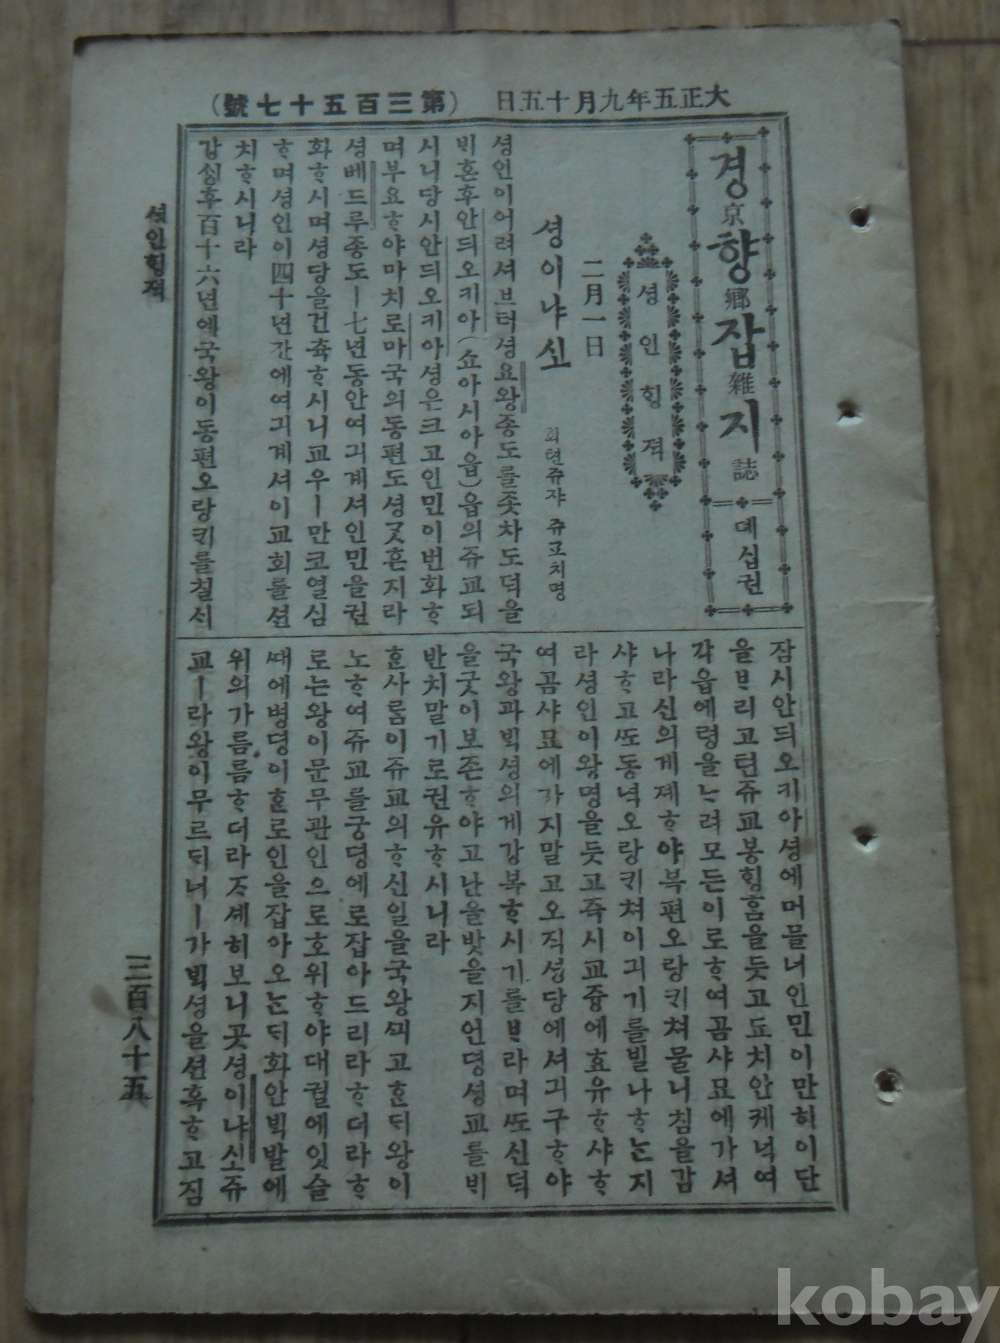 大正五年九月十五日 (第三百五十七號)
경京향鄕잡雜지誌 뎨십권
셩인힝젹
二月一日
셩이냐시오 희텬쥬쟈 쥬교치명
셩인이어려셔브터셩요왕종도를좃차도덕을
비혼후안듸오키아(쇼아시아읍)읍의쥬교되
시니당시안듸오키아셩은크고인민이번화ᄒ
며부요ᄒ야마치로마국의동편도셩ᄀᆺ흔지라
셩베드루종도ㅣ七년동안여긔계셔인민을권
화ᄒ시며셩당을건츅ᄒ시니교우ㅣ만코열심
ᄒ며셩인이四十년간에여긔계셔이교회를션
치ᄒ시니라
강싱후百十六년에국왕이동편오랑키를칠식
잠시안듸오키아셩에머믈너인민이만히이단
을ᄇ리고텬쥬교봉힝홈을듯고됴치안케넉여
각읍에령을ᄂ려모든이로ᄒ여곰샤묘에가셔
나라신의게졔ᄒ야부편오랑키쳐믈니침을감
샤ᄒ고ᄯ도동녁오랑키쳐이긔기를빌나ᄒᄂ지
라셩인이왕명을듯고즉시교즁에효유ᄒ샤ᄒ
여곰샤묘에가지말고오직셩당에셔긔구ᄒ야
국왕과빅셩의게강복ᄒ시기를ᄇ라며ᄯ도신덕
을굿이보존ᄒ야고난을밧을지언뎡셩교를비
반치말기로권유ᄒ시니라
ᄒᆫ사름이쥬교의ᄒ신일을국왕ᄭᅴ고ᄒᆫ듸왕이
노ᄒ여쥬교를궁뎡에로잡아드리라ᄒ더라ᄒ
로ᄂᆫ왕이문무관인으로호위ᄒ야대궐에잇슬
ᄯᅢ에병뎡이ᄒᆫ로인을잡아오ᄂᆫ듸화안빅발에
위의가름름ᄒ더라ᄌᆞ셰히보니곳셩이냐시오쥬
교ㅣ라왕이무르듸너ㅣ가빅셩을션혹ᄒ고짐
셩인힝젹
三百八十五
kobay